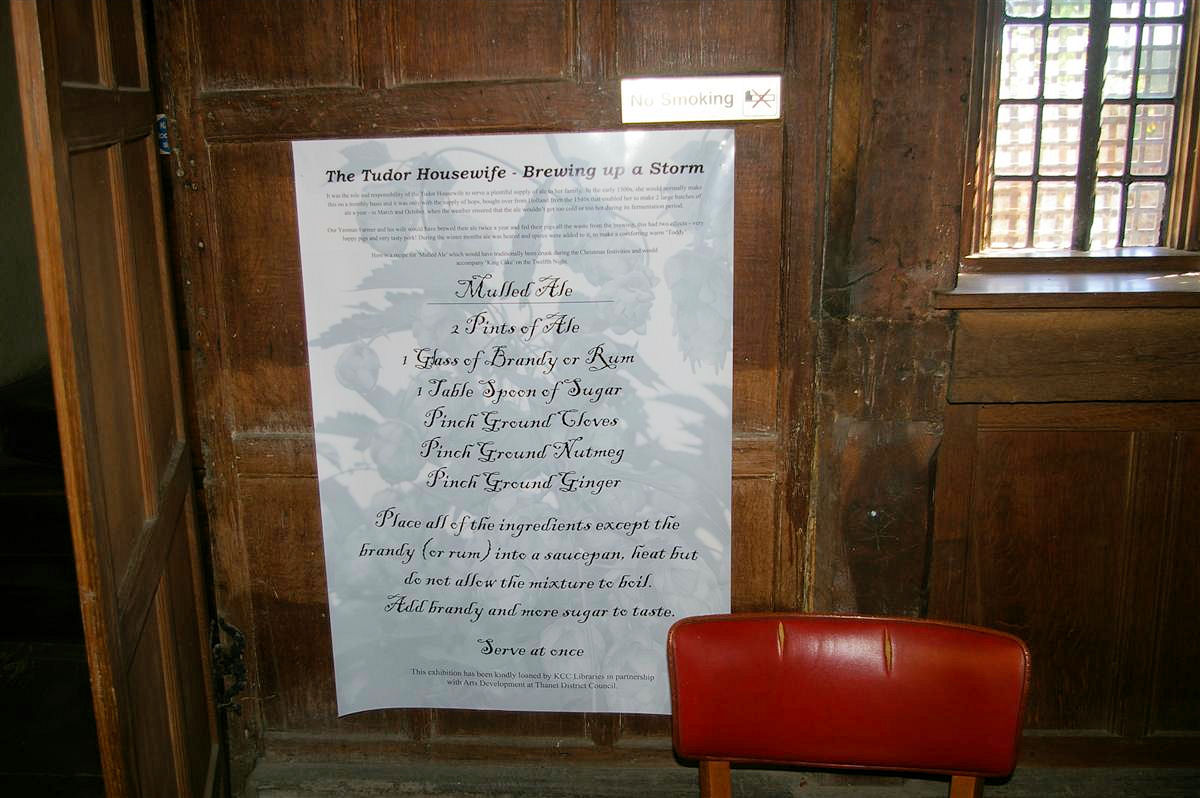 No Smoking
The Tudor Housewife - Brewing up a Storm
It was the role and responsibility of the Tudor Housewife to serve a plentiful supply of ale to her family. In the early 1500s, she would normally make
this on a monthly basis and it was only with the supply of hops, bought over from Holland from the 1540s that enabled her to make 2 large batches of
ale a year - in March and October, when the weather ensured that the ale wouldn't get too cold or too hot during its fermentation period.
Our Yeoman Farmer and his wife would have brewed their ale twice a year and fed their pigs all the waste from the brewing, this had two effects - very
happy pigs and very tasty pork! During the winter months ale was heated and spices were added to it, to make a comforting warm "Toddy"
Here is a recipe for 'Mulled Ale' which would have traditionally been drunk during the Christmas festivities and would
accompany 'King Cake' on the Twelfth Night.
Mulled Ale
2 Pints of Ale
1 Glass of Brandy or Rum
1 Table Spoon of Sugar
Pinch Ground Cloves
Pinch Ground Nutmeg
Pinch Ground Ginger
Place all of the ingredients except the
brandy (or rum) into a saucepan, heat but
do not allow the mixture to boil.
Add brandy and more sugar to taste.
Serve at once
This exhibition has been kindly loaned by KCC Libraries in partnership
with Arts Development at Thanet District Council.